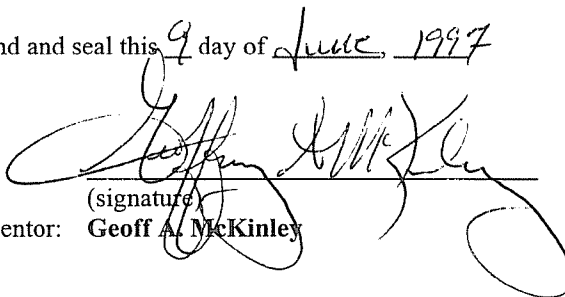 nd and seal this 9 day of June, 1997
Geoffrey A McKinley
(signature)
entor: Geoff A. McKinley